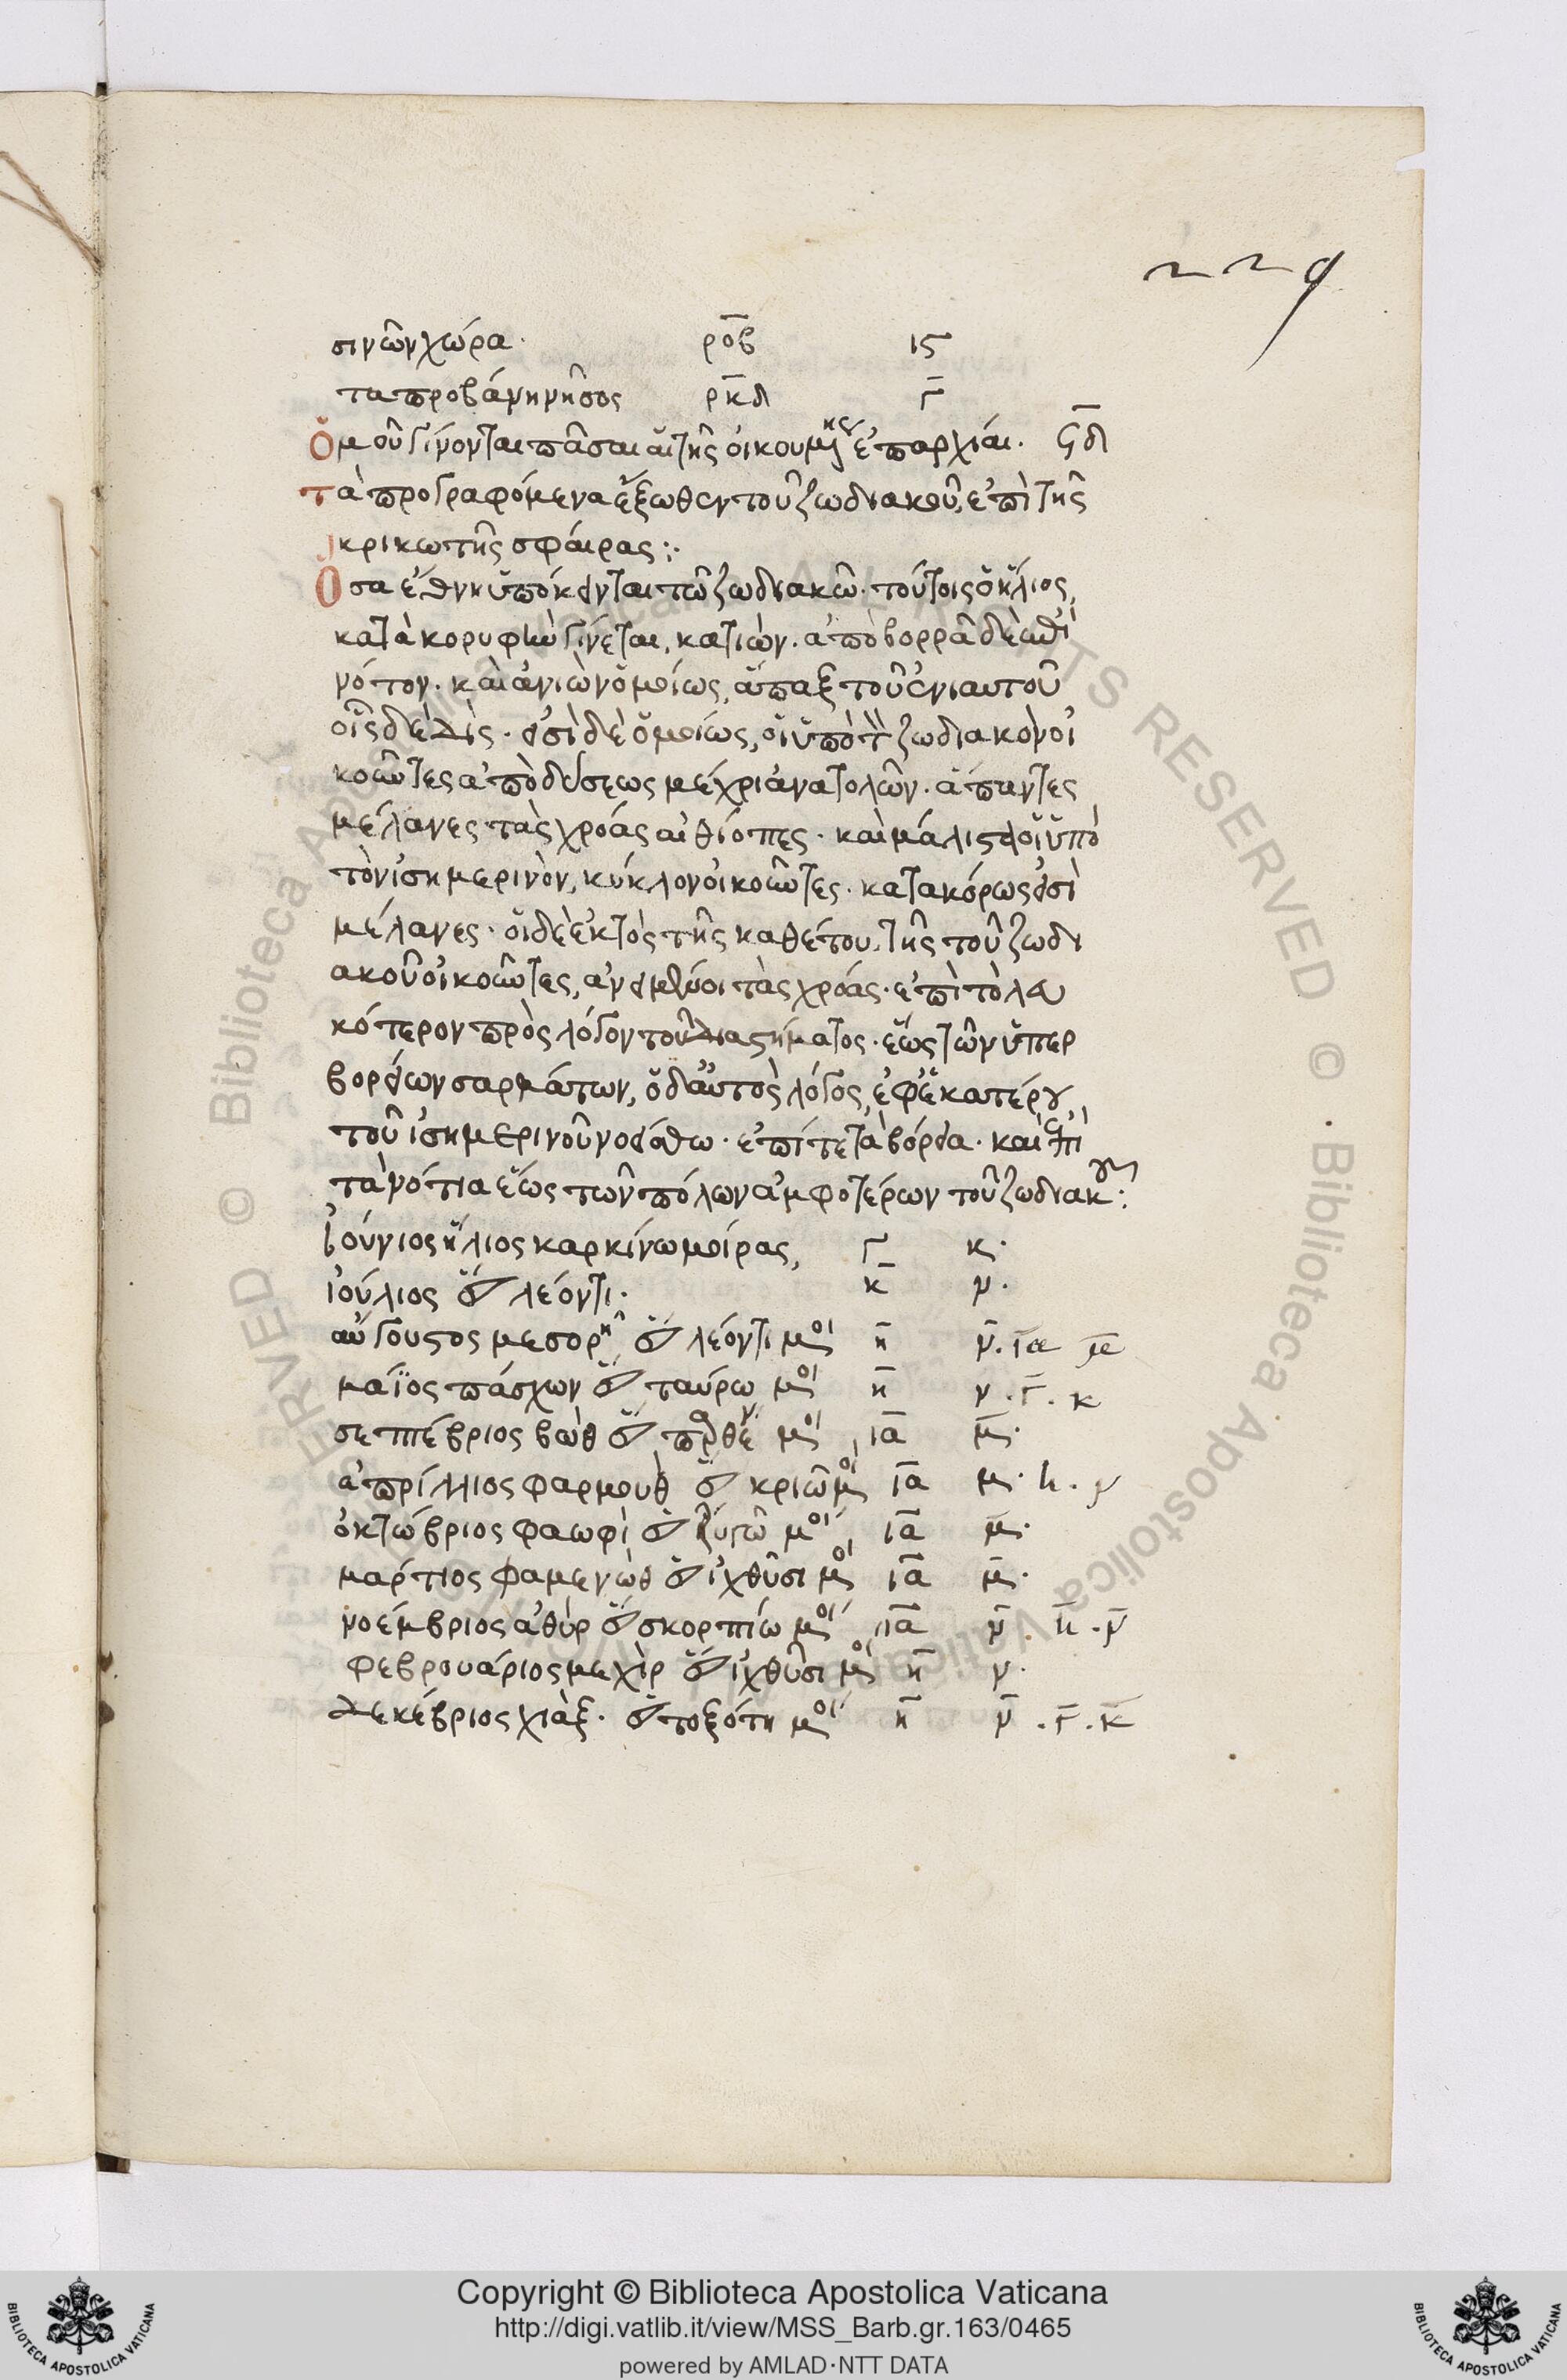 229
σινῶν χώρα· ρ̅ο̅β̅ ι̅ς̅
ταπροβάνη νῆσος ρ̅κ̅δ̅ γ̅
Ὁμοῦ γίνονται πᾶσαι αἱ τῆς οἰκουμένης ἐπαρχίαι· ϟ̅δ̅
τὰ προγραφόμενα ἔξωθεν τοῦ ζωδιακοῦ, ἐπὶ τῆς
κρικωτῆς σφαίρας :·
Ὅσα ἔθνη ὑπόκεινται τῶ ζωδιακῶ· τούτοις ὁ ἥλιος,
κατὰ κορυφὴν γίνεται, κατιὼν· ἀπὸ βορρᾶ δὲ ἐπὶ
νότον· καὶ ἀνιὼν ὁμοίως, ἅπαξ τοῦ ἐνιαυτοῦ
οἷς δὲ δὶς· εἰσὶ δὲ ὁμοίως, οἱ ὑπὸ τὸν ζωδιακὸν οἰ
κοῦντες ἀπὸ δύσεως μέχρι ἀνατολῶν· ἅπαντες
μέλανες τὰς χροάς αἰθίοπες· καὶ μάλιστα οἱ ὑπὸ
τὸν ἰσημερινὸν, κύκλον οἰκοῦντες· κατακόρως εἰσὶ
μέλανες· οἱ δὲ ἐκτὸς τῆς καθέτου, τῆς τοῦ ζωδι
ακοῦ οἰκοῦντες, ἀνειμένοι τὰς χροάς· ἐπὶ τὸ λευ
κότερον πρὸς λόγον τοῦ διαστήματος· ἕως τῶν ὑπερ
βορείων σαρμάτων, ὁ δ' αὐτὸς λόγος, ἐφ' ἑκατέρου,
τοῦ ἰσημερινοῦ νοείσθω· ἐπί τε τὰ βόρεια· καὶ ἐπὶ
τὰ νότια ἕως τῶν πόλων ἀμφοτέρων τοῦ ζωδιακοῦ :
ἰούνιος ἥλιος καρκίνω μοίρας, γ̅ κ·
ἰούλιος ☉ λέοντι· κ̅ ν·
αὔγουστος μεσορὴ ☉ λέοντι μοι η̅ ν̅· ι̅α̅ μ̅
μάϊος πάσχων ☉ ταύρω μοι η̅ ν· γ̅· κ
σεπτέβριος θὼθ ☉ παρθένω μοι ι̅α̅ μ̅·
ἀπρίλλιος φαρμουθὶ ☉ κριῶ μοι ι̅α̅ μ· η· ν
ὀκτώβριος φαωφὶ ☉ ζυγῶ μοι ι̅α̅ μ̅·
μάρτιος φαμενὼθ ☉ ἰχθῦσι μοι ι̅α̅ μ̅·
νοέμβριος ἀθὺρ ☉ σκορπίω μοι ι̅α̅ ν̅· η̅· ν̅
φεβρουάριος μεχὶρ ☉ ἰχθῦσι μοι η̅ ν·
δεκέβριος χιὰξ· ☉ τοξότη μοι η̅ ν̅· γ̅· κ̅
© Biblioteca Apostolica Vaticana ALL RIGHTS RESERVED
Copyright © Biblioteca Apostolica Vaticana
http://digi.vatlib.it/view/MSS_Barb.gr.163/0465
powered by AMLAD·NTT DATA
BIBLIOTECA APOSTOLICA VATICANA
BIBLIOTECA APOSTOLICA VATICANA